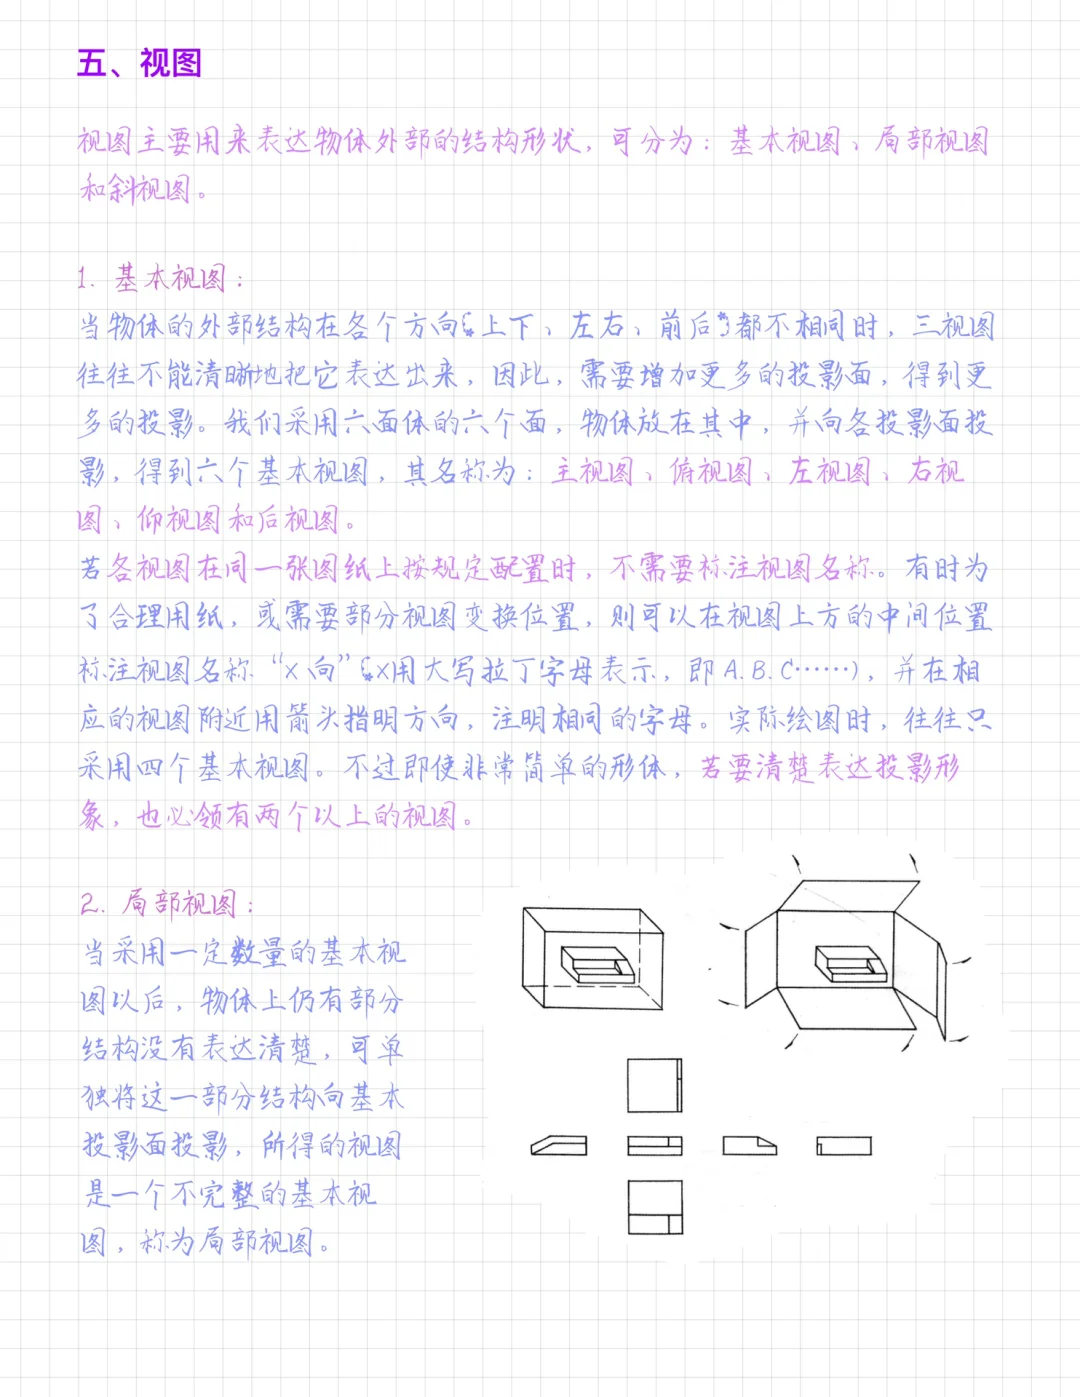 五、视图
视图主要用来表达物体外部的结构形状，可分为：基本视图、局部视图
和斜视图。
1. 基本视图：
当物体的外部结构在各个方向（上下、左右、前后）都不相同时，三视图
往往不能清晰地把它表达出来，因此，需要增加更多的投影面，得到更
多的投影。我们采用六面体的六个面，物体放在其中，并向各投影面投
影，得到六个基本视图，其名称为：主视图、俯视图、左视图、右视
图、仰视图和后视图。
若各视图在同一张图纸上按规定配置时，不需要标注视图名称。有时为
了合理用纸，或需要部分视图变换位置，则可以在视图上方的中间位置
标注视图名称“X向”（X用大写拉丁字母表示，即A.B.C……），并在相
应的视图附近用箭头指明方向，注明相同的字母。实际绘图时，往往只
采用四个基本视图。不过即使非常简单的形体，若要清楚表达投影形
象，也必领有两个以上的视图。
2. 局部视图：
当采用一定数量的基本视
图以后，物体上仍有部分
结构没有表达清楚，可单
独将这一部分结构向基本
投影面投影，所得的视图
是一个不完整的基本视
图，称为局部视图。